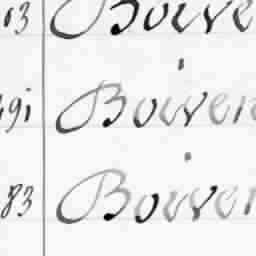 03 Boive
491 Boiven
83 Boiven